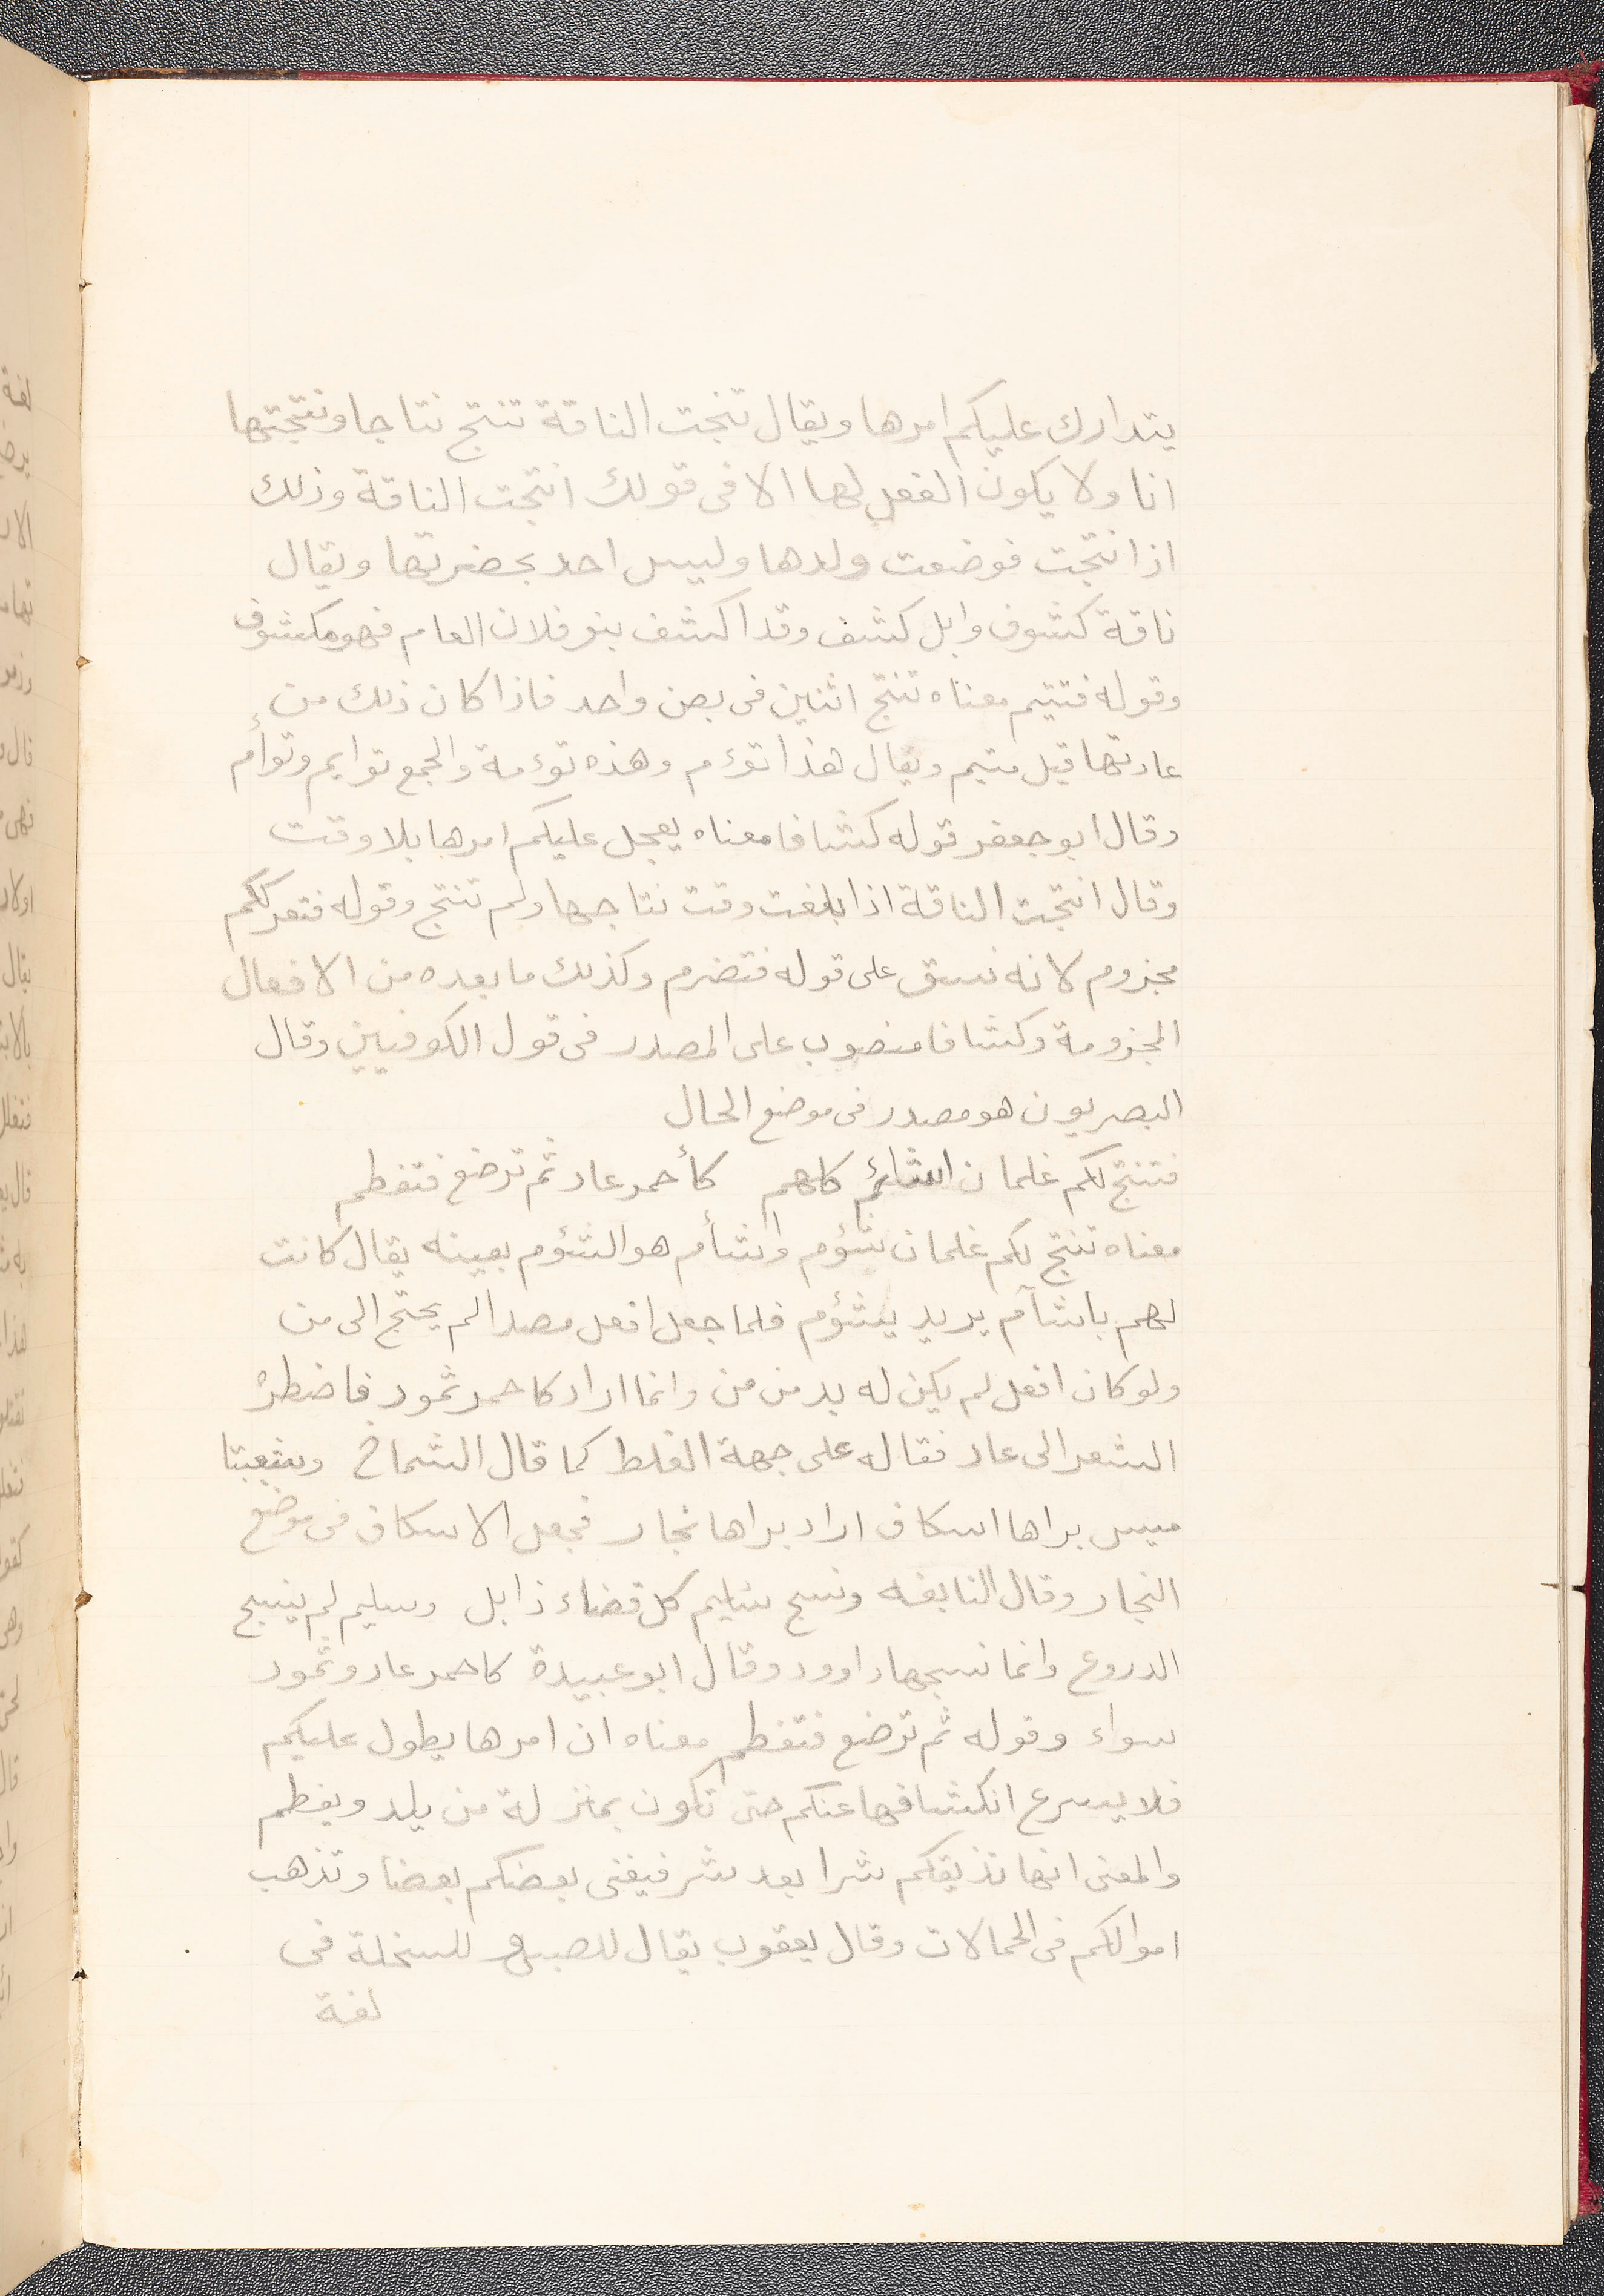 يتدارك عليكم امرها ويقال نتجت الناقة تنتج نتاجا ونتجتها
انا ولا يكون الفعل لها الا فى قولك انتجت الناقة وذلك
اذا نتجت فوضعت ولدها وليس احد بحضرتها ويقال
ناقة كشوف وابل كشف وقد اكشف بنو فلان العام فهو مكشوف
وقوله فتتيم معناه تنتج اثنين فى بصن واحد فاذا كان ذلك من
عادتها قيل متيم ويقال هذا تؤم وهذه تؤمة والجمع توايم وتوأم
وقال ابو جعفر قوله كشافا معناه يعجل عليكم امرها بلا وقت
وقال انتجت الناقة اذا بلغت وقت نتاجها ولم تنتج وقوله فتعرككم
مجزوم لانه نسق على قوله فتضرم وكذلك ما بعده من الافعال
المجزومة وكشافا منصوب على المصدر فى قول الكوفيين وقال
البصريون هو مصدر فى موضع الحال
فتنتج لكم غلمان اشأم كلهم كأحمر عاد ثم ترضع فتفطم
معناه تنتج لكم غلمان شؤم واشأم هو الشؤم بعينه يقال كانت
لهم باشآم يريد بشؤم فلما جعل افعل مصدرا لم يحتج الى من
ولو كان افعل لم يكن له بد من من وانما اراد كاحمر ثمود فاضطره
الشعر الى عاد فقاله على جهة الغلط كما قال الشماخ وشعبتا
ميس براها اسكاف اراد براها نجار فجعل الاسكاف فى موضع
النجار وقال النابغه ونسج سليم كل قضاء ذابل وسليم لم ينسج
الدروع وانما نسجها داوود وقال ابو عبيدة كاحمر عاد وثمود
سواء وقوله ثم ترضع فتفطم معناه ان امرها يطول عليكم
فلا يسرع انكشافها عنكم حتى تكون بمنزلة من يلد ويفطم
والمعنى انها تذيقكم شرا بعد شر فيفنى بعضكم بعضا وتذهب
اموالكم فى الحمالات وقال يعقوب يقال للصبى وللسخلة فى
لغة